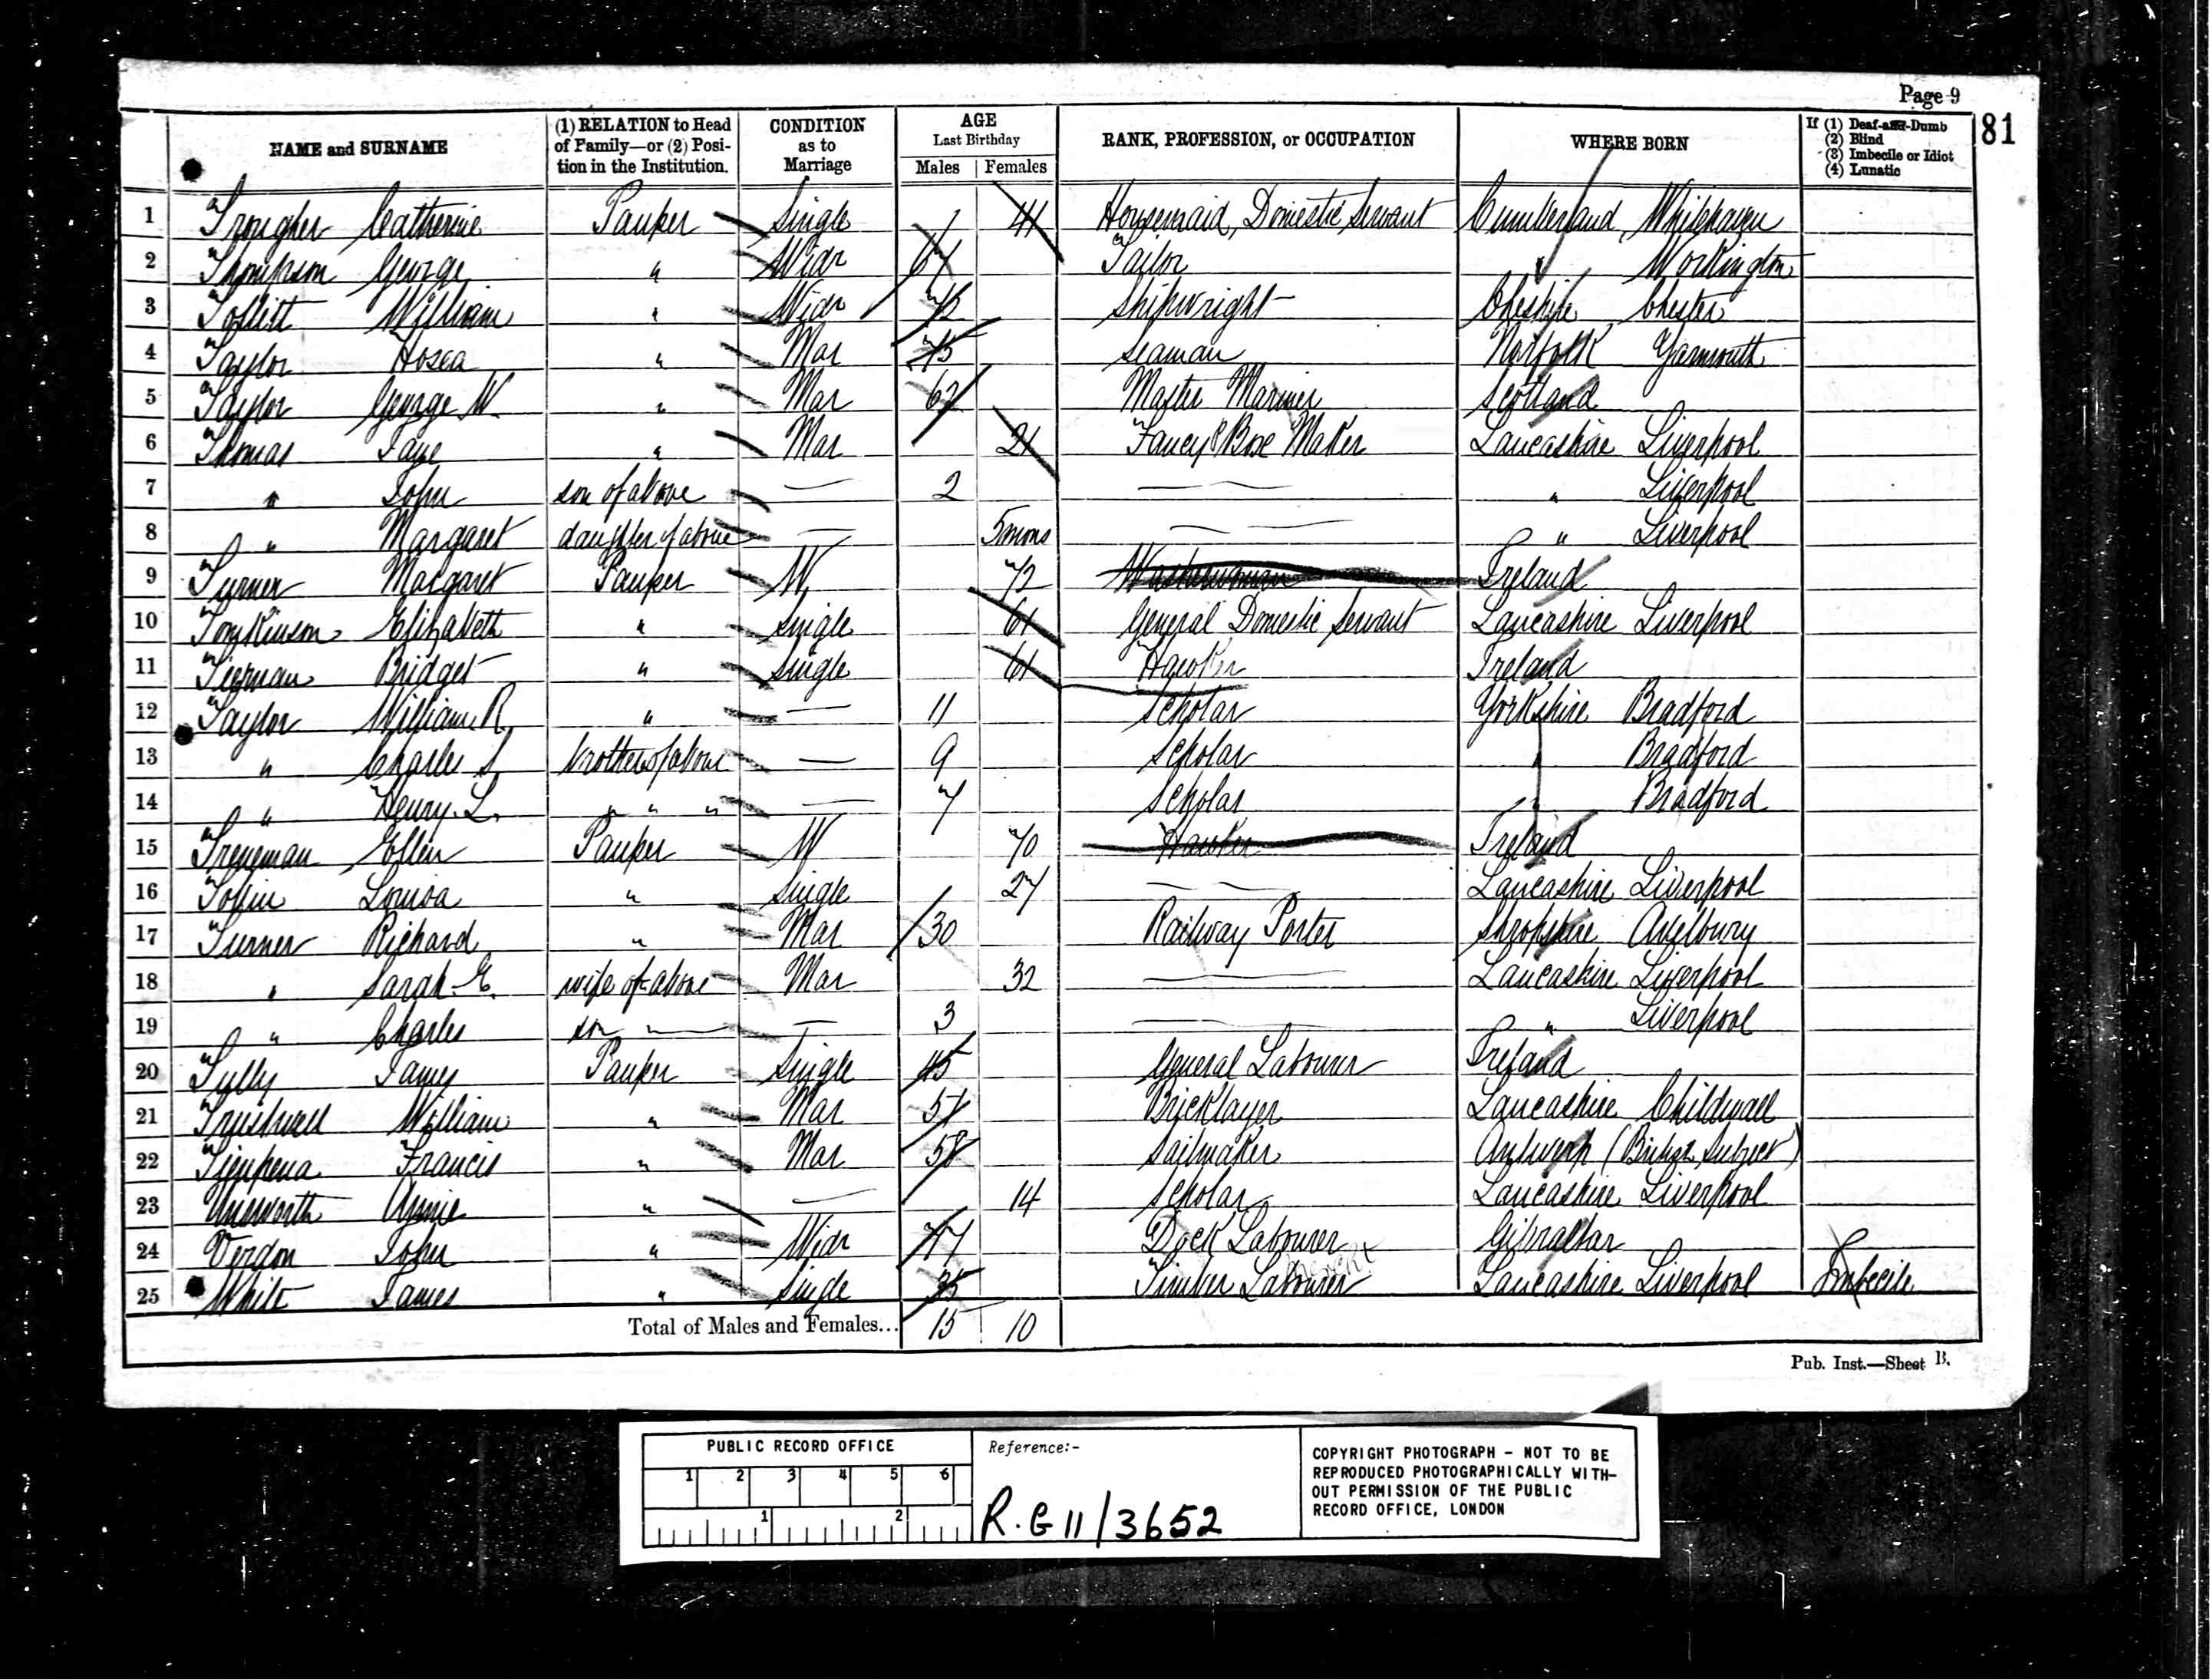 Page 9
81
NAME and SURNAME
(1) RELATION to Head of Family—or (2) Position in the Institution.
CONDITION as to Marriage
AGE Last Birthday
Males Females
RANK, PROFESSION, or OCCUPATION
WHERE BORN
If (1) Deaf-and-Dumb
(2) Blind
(3) Imbecile or Idiot
(4) Lunatic
1 Catherine Pauper Single 41 Housemaid, Domestic Servant Cumberland, Whitehaven
2 Thompson George " Widr Tailor " Workington
3 William " Widr Shipwright Cheshire Chester
4 Taylor Hosea " Mar 75 Seaman Norfolk Yarmouth
5 Taylor George W. " Mar Master Mariner Scotland
6 Thomas Jane " Mar 21 Fancy Box Maker Lancashire Liverpool
7 " John son of above — 2 — " Liverpool
8 " Margaret daughter of above — 5 mons — " Liverpool
9 Turner Margaret Pauper W 72 Washerwoman Ireland
10 Tomkinson Elizabeth " Single 61 General Domestic Servant Lancashire Liverpool
11 Bridget " Single 61 Hawker Ireland
12 Taylor William R. " — 11 Scholar Yorkshire Bradford
13 " Charles S. brother of above — 9 Scholar " Bradford
14 " Henry L. " " " — 7 Scholar " Bradford
15 Ellen Pauper W 70 Hawker Ireland
16 Louisa " Single 27 — Lancashire Liverpool
17 Turner Richard " Mar 30 Railway Porter Shropshire
18 " Sarah E. wife of above Mar 32 — Lancashire Liverpool
19 " Charles son " — 3 — " Liverpool
20 Tully James Pauper Single 45 General Labourer Ireland
21 William " Mar Bricklayer Lancashire Childwall
22 Francis " Mar 58 Sailmaker Antwerp (British Subject)
23 Unsworth Annie " — 14 Scholar Lancashire Liverpool
24 Verdon John " Widr Dock Labourer Gibraltar
25 White James " Single 35 Timber Labourer Lancashire Liverpool Imbecile
Total of Males and Females... 15 10
Pub. Inst.—Sheet B.
PUBLIC RECORD OFFICE
1 2 3 4 5 6
1 2
Reference:-
R.G 11/3652
COPYRIGHT PHOTOGRAPH - NOT TO BE
REPRODUCED PHOTOGRAPHICALLY WITH-
OUT PERMISSION OF THE PUBLIC
RECORD OFFICE, LONDON